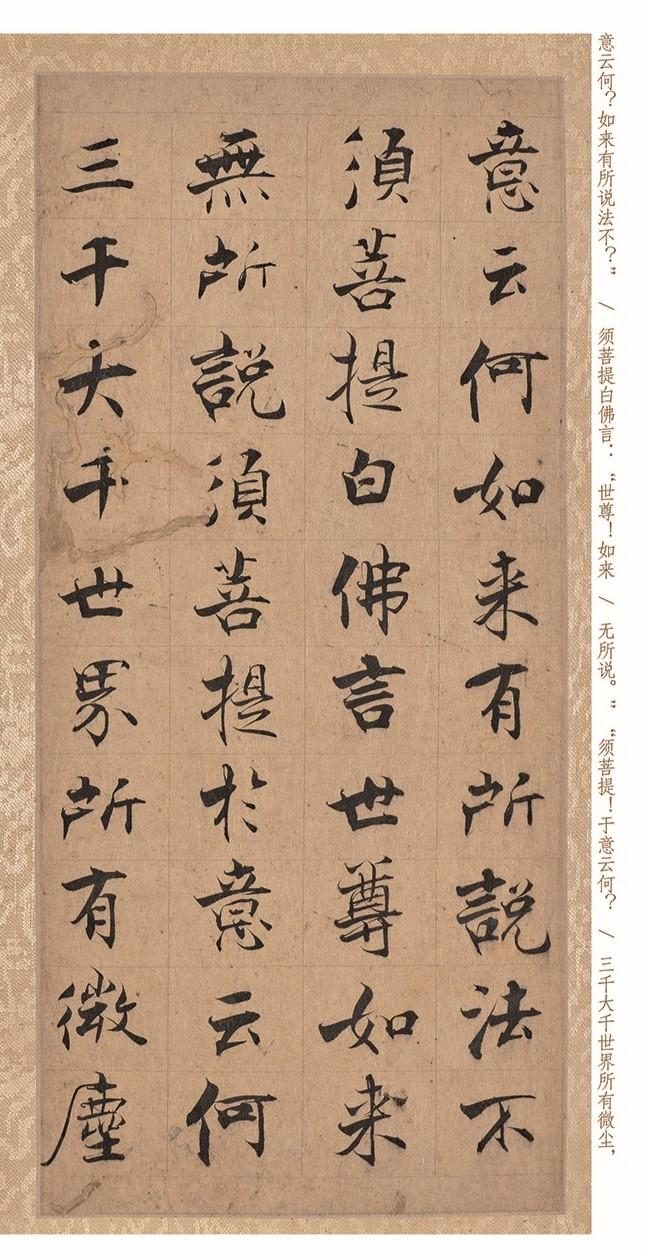 意云何？如来有所说法不？” / 须菩提白佛言：“世尊！如来 / 无所说。” “须菩提！于意云何？ / 三千大千世界所有微尘，
意云何如来有所説法不
須菩提白佛言世尊如来
無所説須菩提於意云何
三千大千世界所有微塵